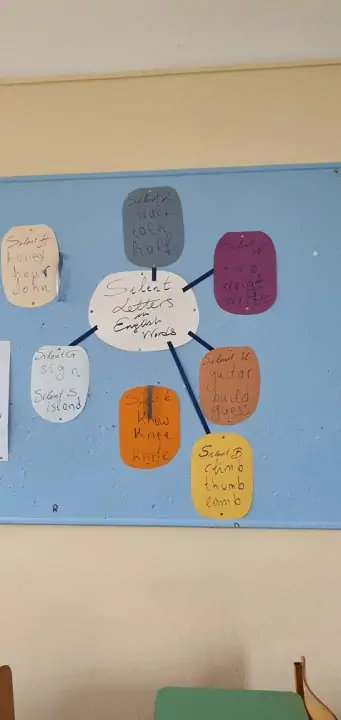 Silent L
walk
talk
half
Silent H
honest
hour
John
Silent W
two
wright
write
Silent
Letters
in
English
Words
Silent G
sign
Silent S
island
Silent U
guitar
build
guess
Silent K
know
knee
knife
Silent B
climb
thumb
lamb